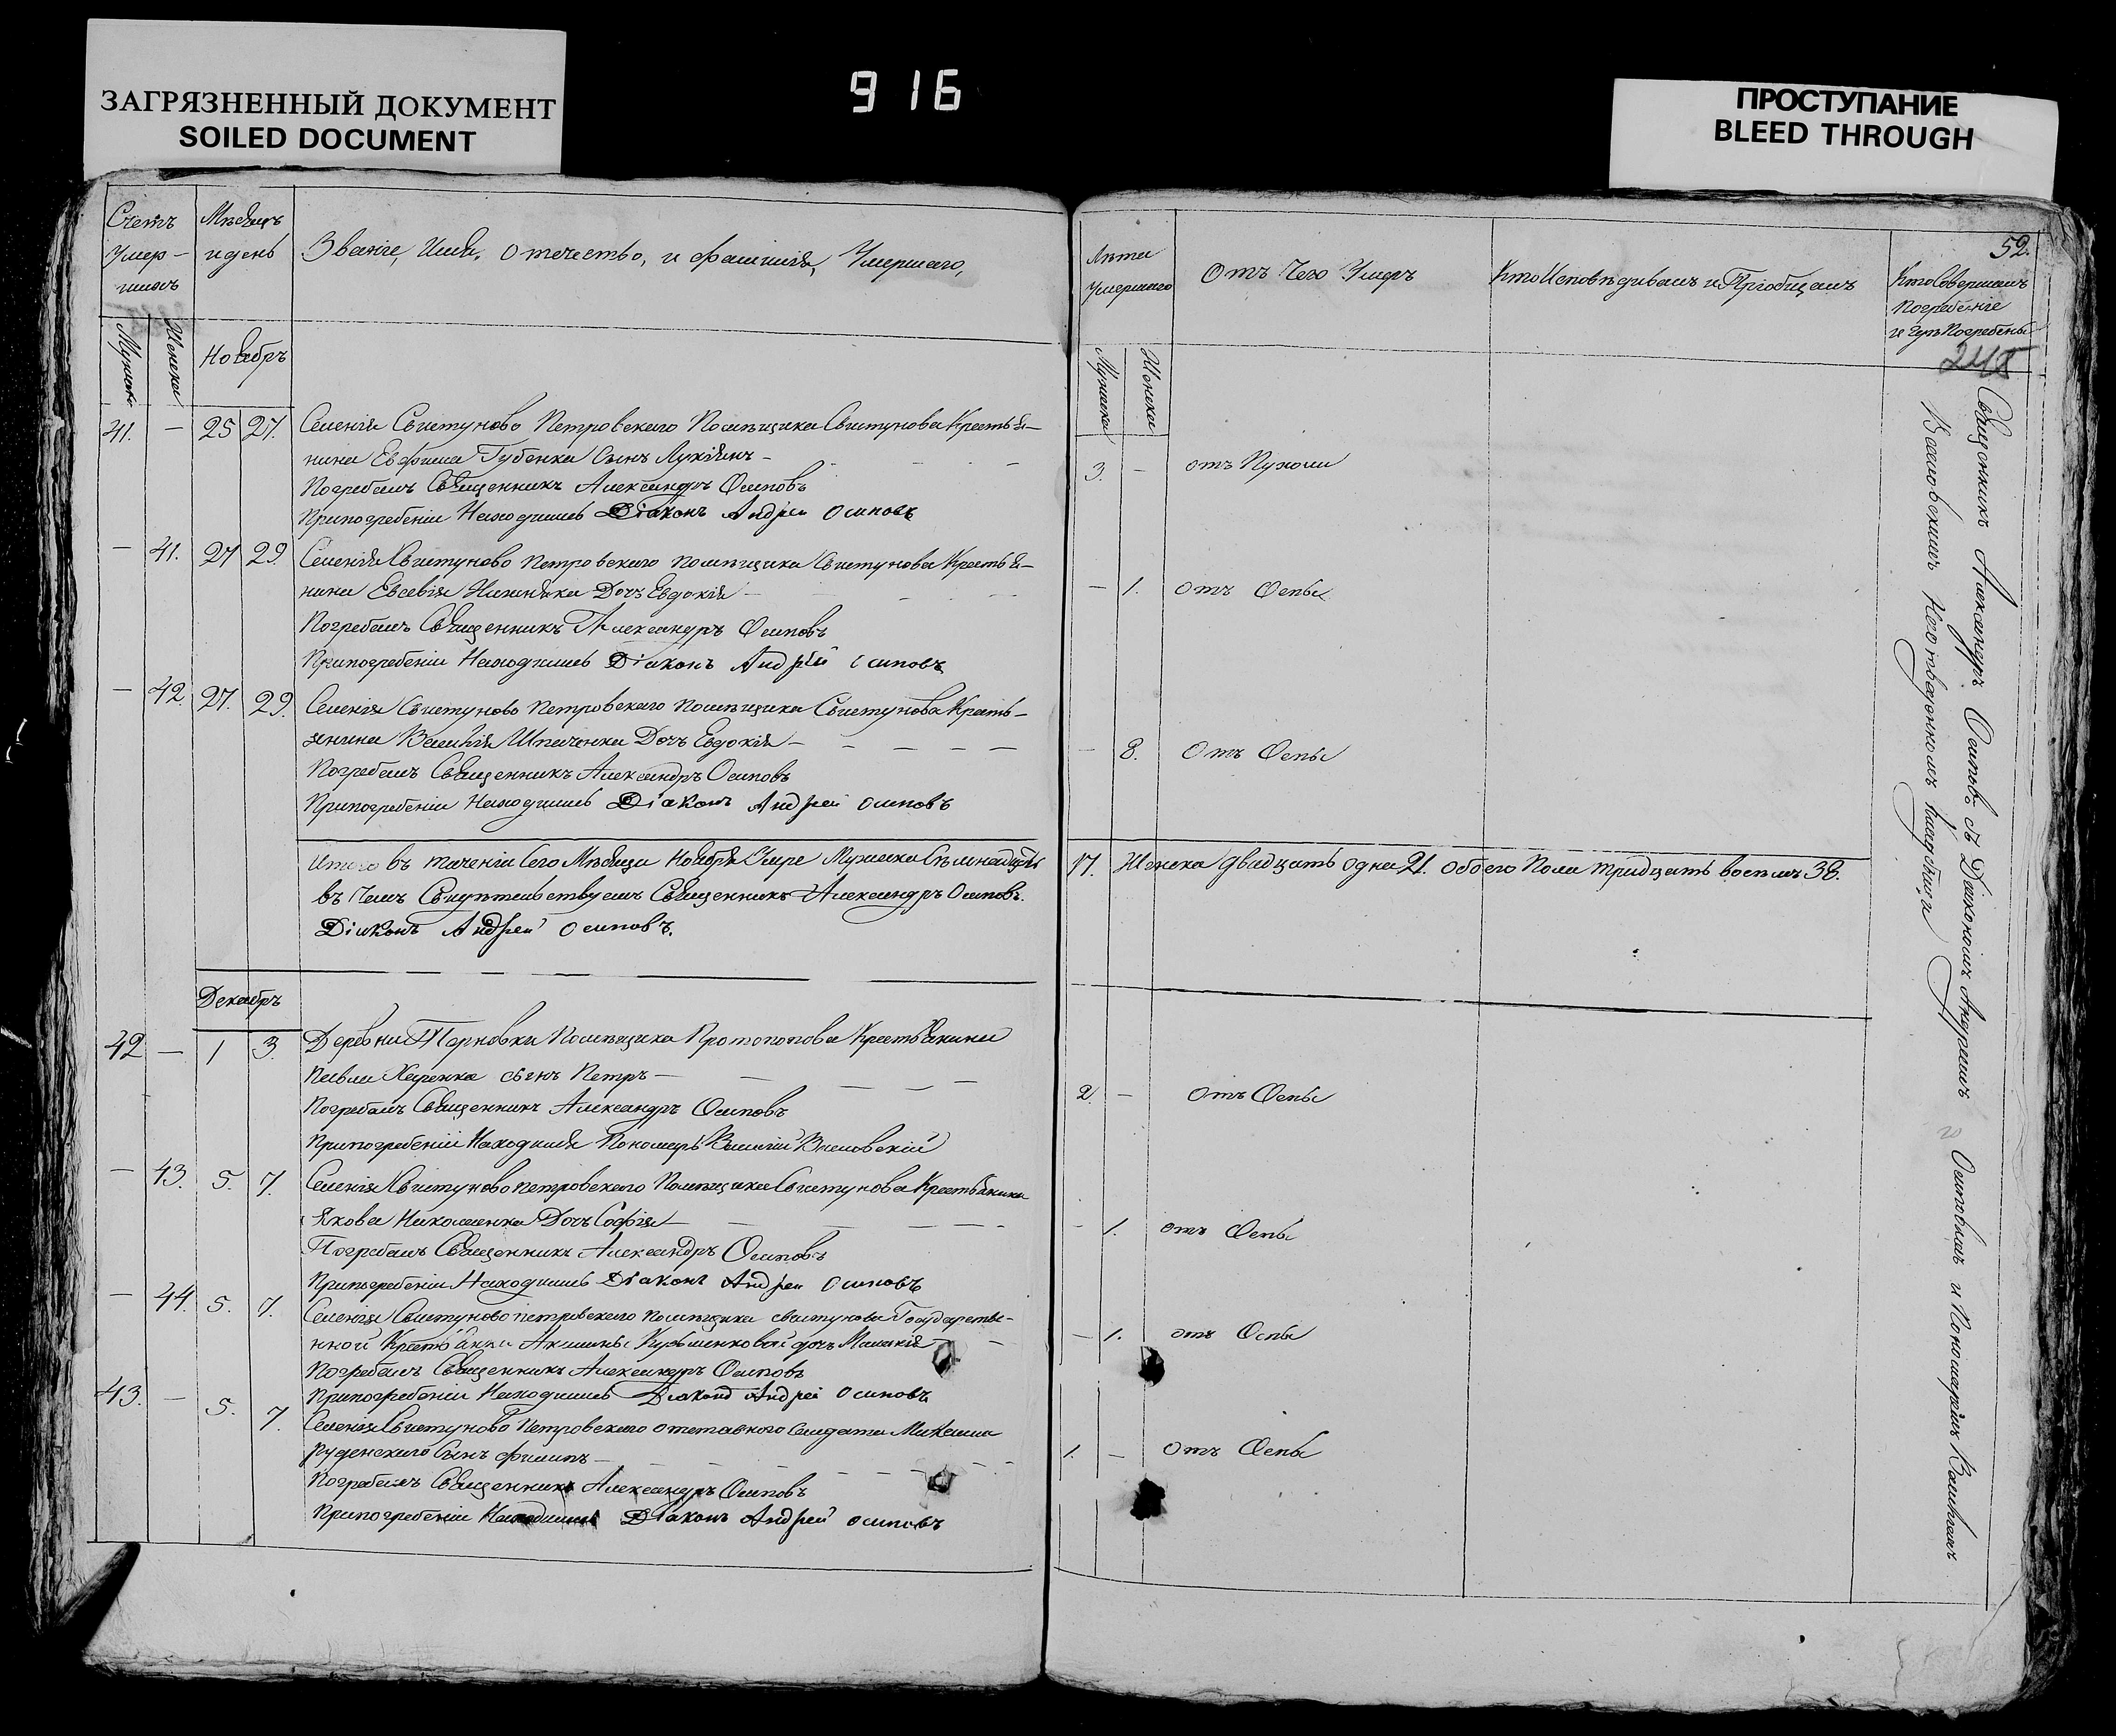 ЗАГРЯЗНЕННЫЙ ДОКУМЕНТ
SOILED DOCUMENT
916
ПРОСТУПАНИЕ
BLEED THROUGH
Счетъ Умер-шихъ
Мѣсяцъ и день
Званіе, Имя, отечество, и фамилія, Умершаго,
Мужска
Женска
Ноябръ
41. — 25 27. Селенія Свистуново Петровскаго Помѣщика Свистунова Крестья-
нина Евфима Губенка Сынъ Лукіянъ —
Погребалъ Священникъ Александръ Осиповъ
Припогребеніи Находились Діаконъ Андрей Осиповъ
— 41. 27 29. Селенія Свистуново Петровскаго помѣщика Свистунова Крестья-
нина Евсевія Дочь Евдокія —
Погребалъ Священникъ Александръ Осиповъ
Припогребеніи Находились Діаконъ Андрей Осиповъ
— 42. 27. 29. Селенія Свистуново Петровскаго помѣщика Свистунова Кресть-
янина Василія Шпаченка Дочь Евдокія —
Погребалъ Священникъ Александръ Осиповъ
Припогребеніи Находились Діаконъ Андрей Осиповъ
Итого въ теченіи Сего Мѣсяца Ноября Умре Мужска Семнадцать
въ Чемъ Свидѣтельствуемъ Священникъ Александръ Осиповъ.
Діаконъ Андрей Осиповъ.
Декабръ
42 — 1 3. Деревни Терновки Помѣщика Протопопова Крестьянина
Павла Харенка сынъ Петръ —
Погребалъ Священникъ Александръ Осиповъ
Припогребеніи Находился Пономарь Василій
— 43. 5. 7. Селенія Свистуново петровскаго Помѣщика Свистунова Крестьянина
Якова Дочь Софія —
Погребалъ Священникъ Александръ Осиповъ
Припогребеніи Находились Діаконъ Андрей Осиповъ
— 44. 5. 7. Селенія Свистуново петровскаго помѣщика свистунова Государстве-
нной Крестьянки Акилины Кузьменковой дочь
Погребалъ Священникъ Александръ Осиповъ
Припогребеніи Находились Діаконъ Андрей Осиповъ
43. — 5. 7. Селенія Свистуново Петровскаго отставного Солдата
Руденскаго Сынъ Филипъ —
Погребалъ Священникъ Александръ Осиповъ
Припогребеніи Находились Діаконъ Андрей осиповъ
52.
Лѣта Умершаго
Отъ Чего Умеръ
Кто Исповѣдивалъ и Пріобщалъ
Кто Совершалъ Погребеніе и Гдѣ Погребены
Мужска
Женска
3. — отъ Пухоли
— 1. отъ Оспы
— 8. Отъ Оспы
17. Женска двадцать одна 21. обоего Пола тридцать восемъ 38.
2. — Отъ Оспы
— 1. отъ Оспы
— 1. отъ Оспы
1. — Отъ Оспы
Священникъ Александръ Осиповъ съ Діакономъ Андреемъ Осиповымъ и Пономаремъ Василіемъ